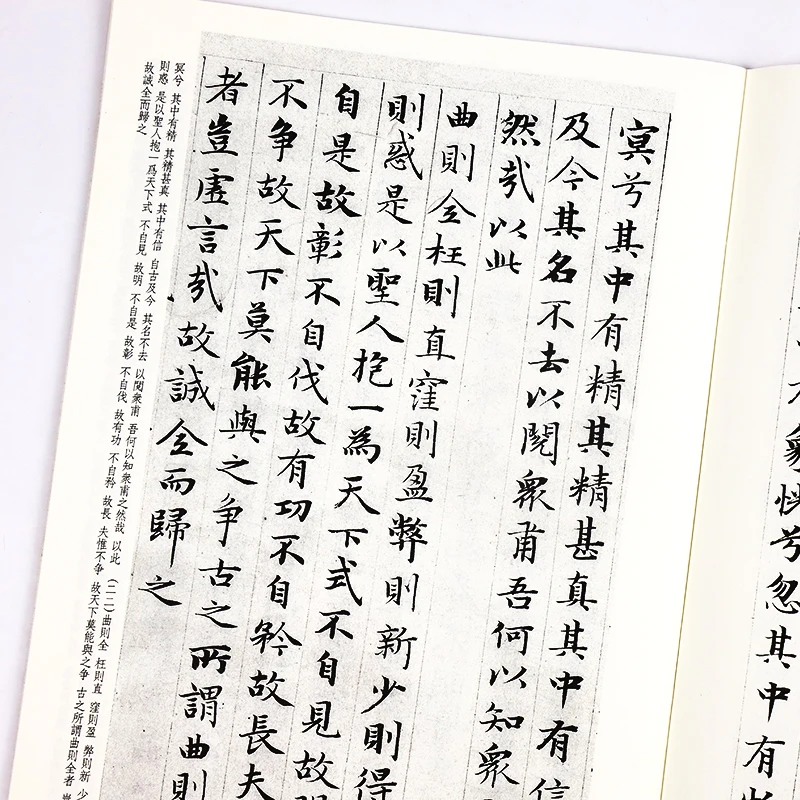 象恍兮忽其中有
冥兮其中有精其精甚真其中有信
及今其名不去以閱衆甫吾何以知衆
然哉以此
曲則全枉則直窪則盈弊則新少則得
則惑是以聖人抱一為天下式不自見故
自是故彰不自伐故有功不自矜故長夫
不争故天下莫能與之争古之所謂曲則
者豈虛言哉故誠全而歸之
冥兮 其中有精 其精甚真 其中有信 自古及今 其名不去 以閱衆甫 吾何以知衆甫之然哉 以此 (二二)曲則全 枉則直 窪則盈 弊則新 少
則惑 是以聖人抱一爲天下式 不自見 故明 不自是 故彰 不自伐 故有功 不自矜 故長 夫惟不争 故天下莫能與之争 古之所謂曲則全者
故誠全而歸之